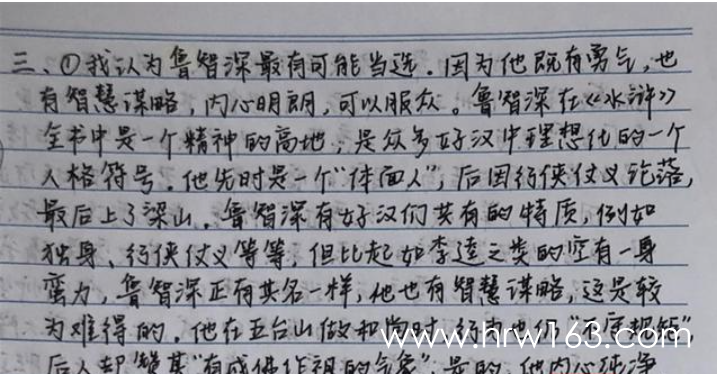 三、①我认为鲁智深最有可能当选。因为他既有勇气,也
有智慧谋略,内心明朗,可以服众。鲁智深在《水浒》
全书中是一个精神的高地,是众多好汉中理想化的一个
人格符号。他先时是一个“体面人”,后因行侠仗义沦落,
最后上了梁山。鲁智深有好汉们共有的特质,例如
独身、行侠仗义等等,但比起如李逵之类的空有一身
蛮力,鲁智深正有其名一样,他也有智慧谋略,这是较
为难得的。他在五台山做和尚时,行为
www.hrw163.com
后人却赞其“有成佛作祖的气象”是的,他内心纯净